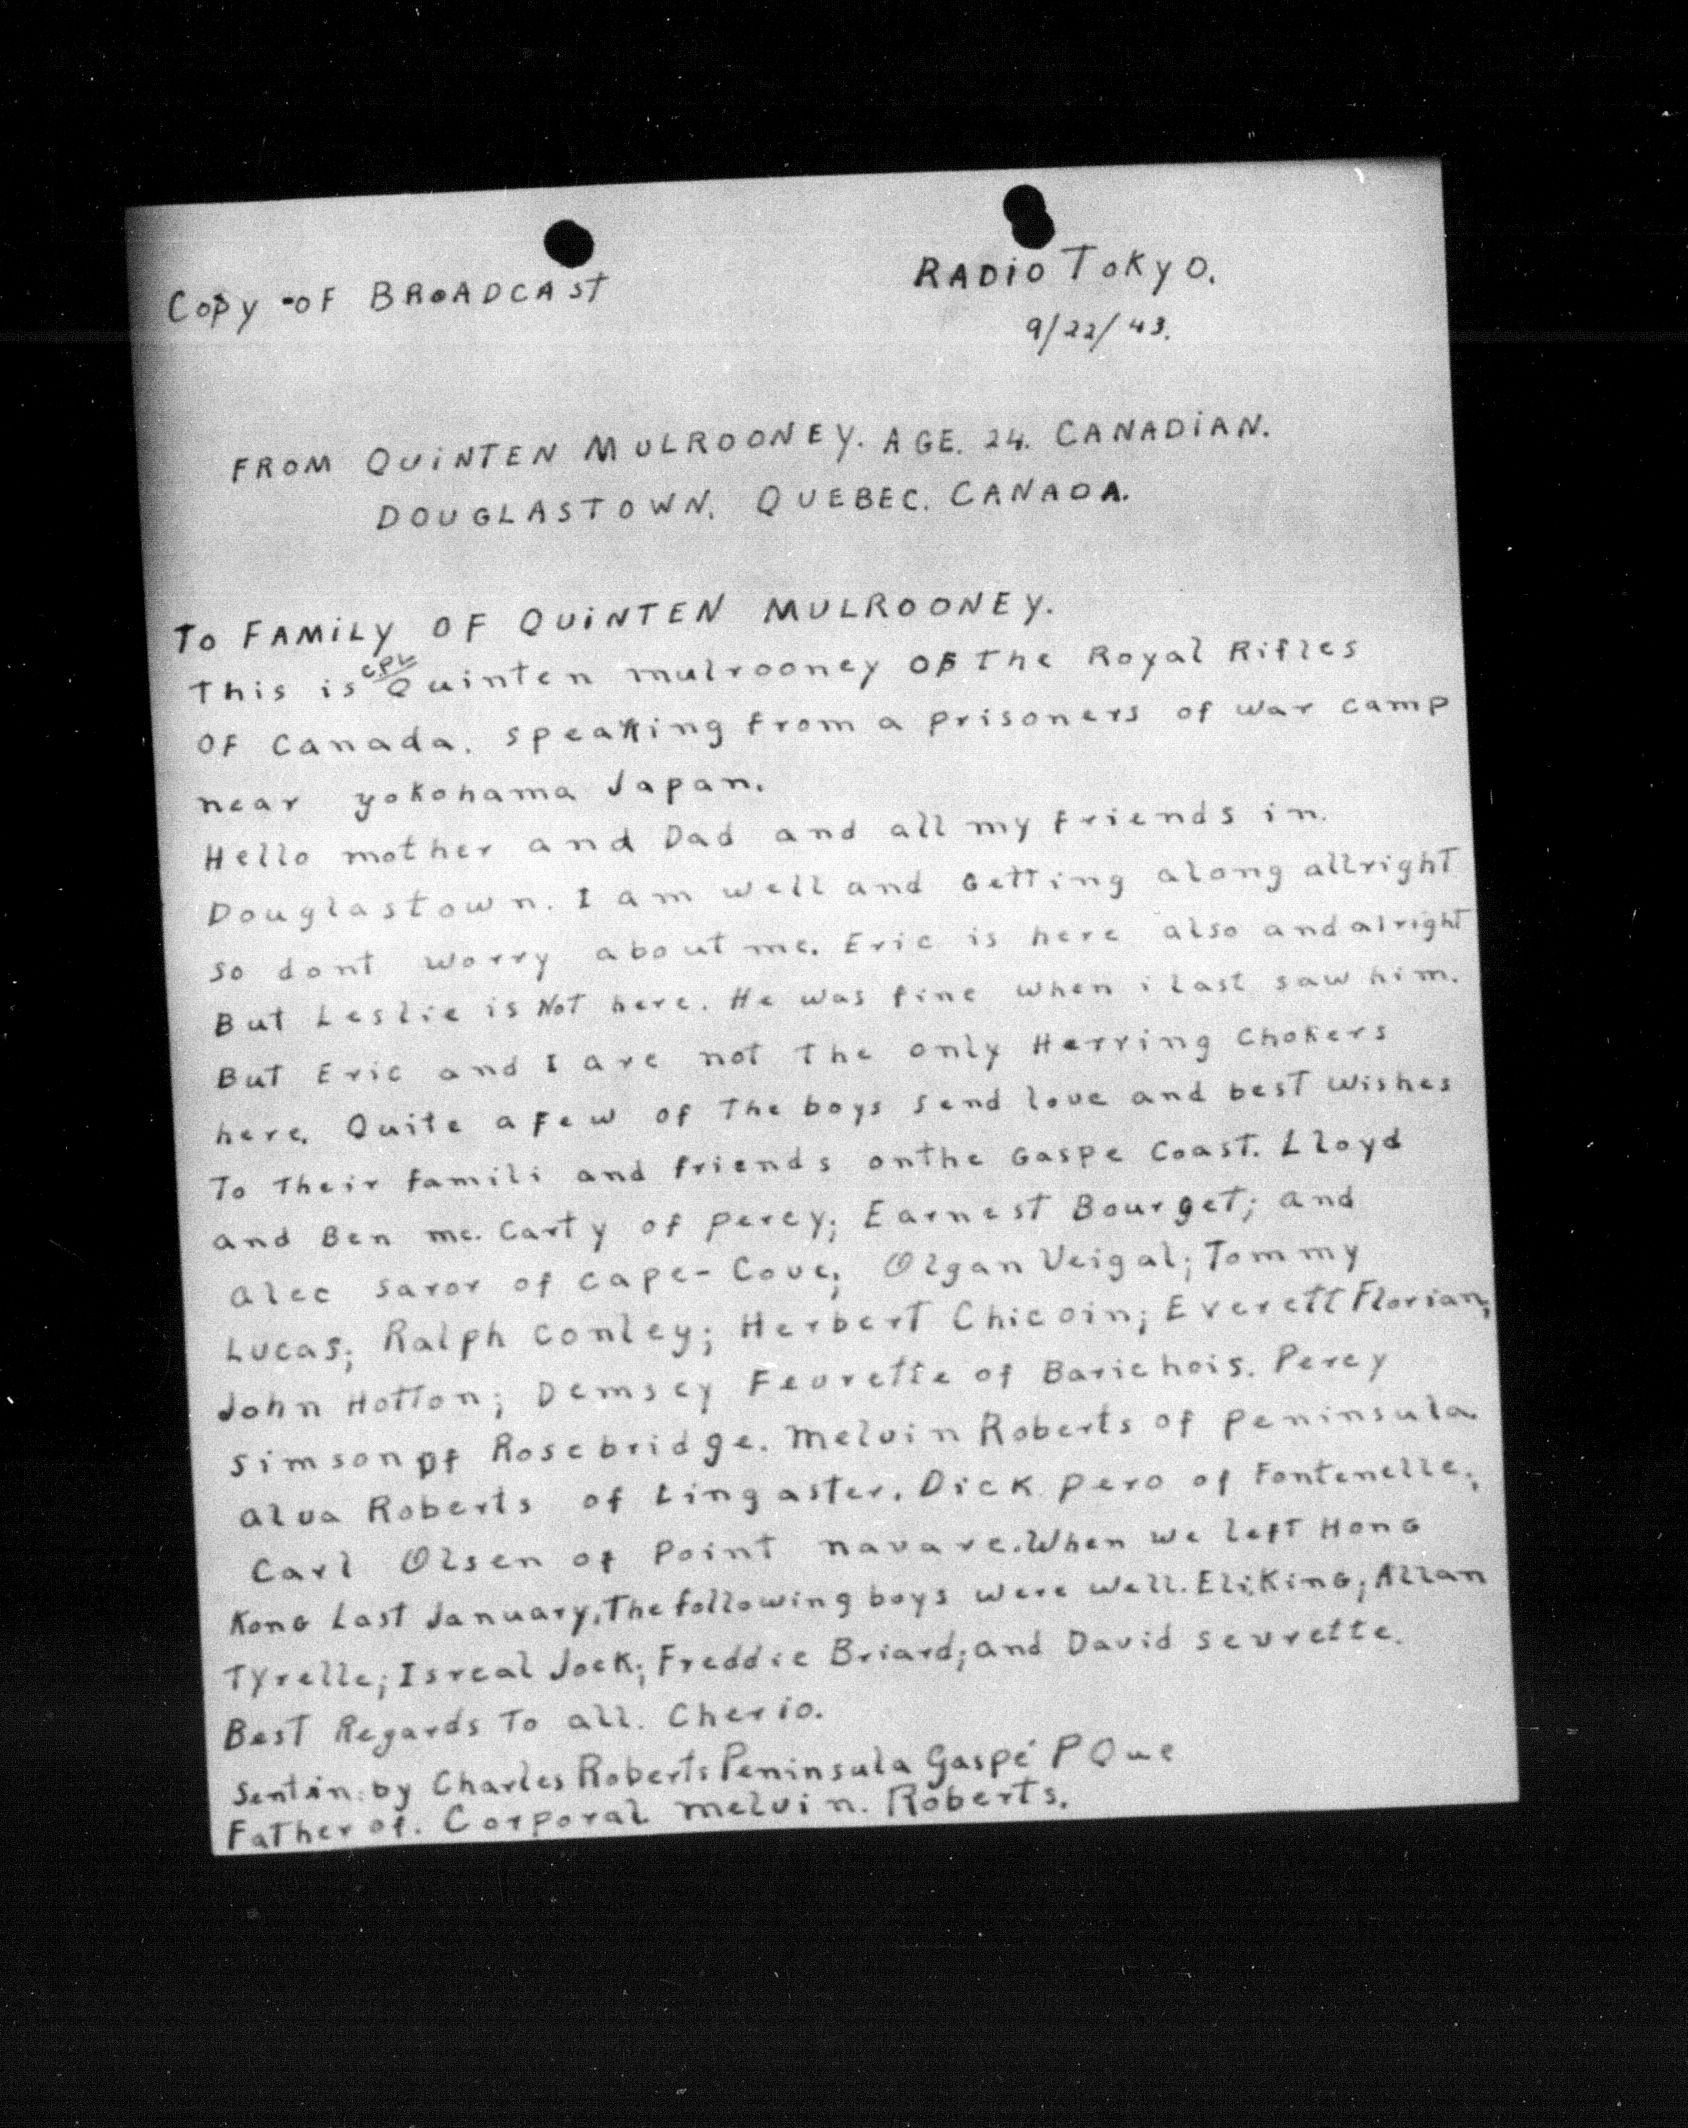 Copy of BROADCAST
RADIO TOKYO.
9/22/43.
FROM QUINTEN MULROONEY. AGE. 24. CANADIAN.
DOUGLASTOWN. QUEBEC. CANADA.
TO FAMILY OF QUINTEN MULROONEY.
CPL
This is Quinten mulrooney OF The Royal Rifles
OF Canada. speaking from a prisoners of war camp
near yokohama Japan.
Hello mother and Dad and all my friends in.
Douglastown. I am well and Getting along allright
so dont worry about me. Eric is here also and alright
But Leslie is Not here. He was fine when i last saw him.
But Eric and I are not The only Herring Chokers
here. Quite a Few of The boys send love and best wishes
To Their famili and friends onthe Gaspe Coast. Lloyd
and Ben mc. Carty of percy; Earnest Bourget; and
alec saror of Cape-Cove; Olgan Veigal; Tommy
Lucas; Ralph Conley; Herbert Chicoin; Everett Florian;
John Hotton; Demsey Feurette of Barichois. Percy
simson of Rosebridge. melvin Roberts of peninsula.
alva Roberts of Lingaster. Dick pero of Fontenelle;
Carl Olsen of Point navare. When we left HONG
KONG Last January. The following boys were well. Eli KING; Allan
Tyrelle; Isreal Jock; Freddie Briard; and David seurette.
Best Regards To all. Cherio.
Sent in by Charles Roberts Peninsula Gaspé P Que
Father of. Corporal melvin. Roberts.